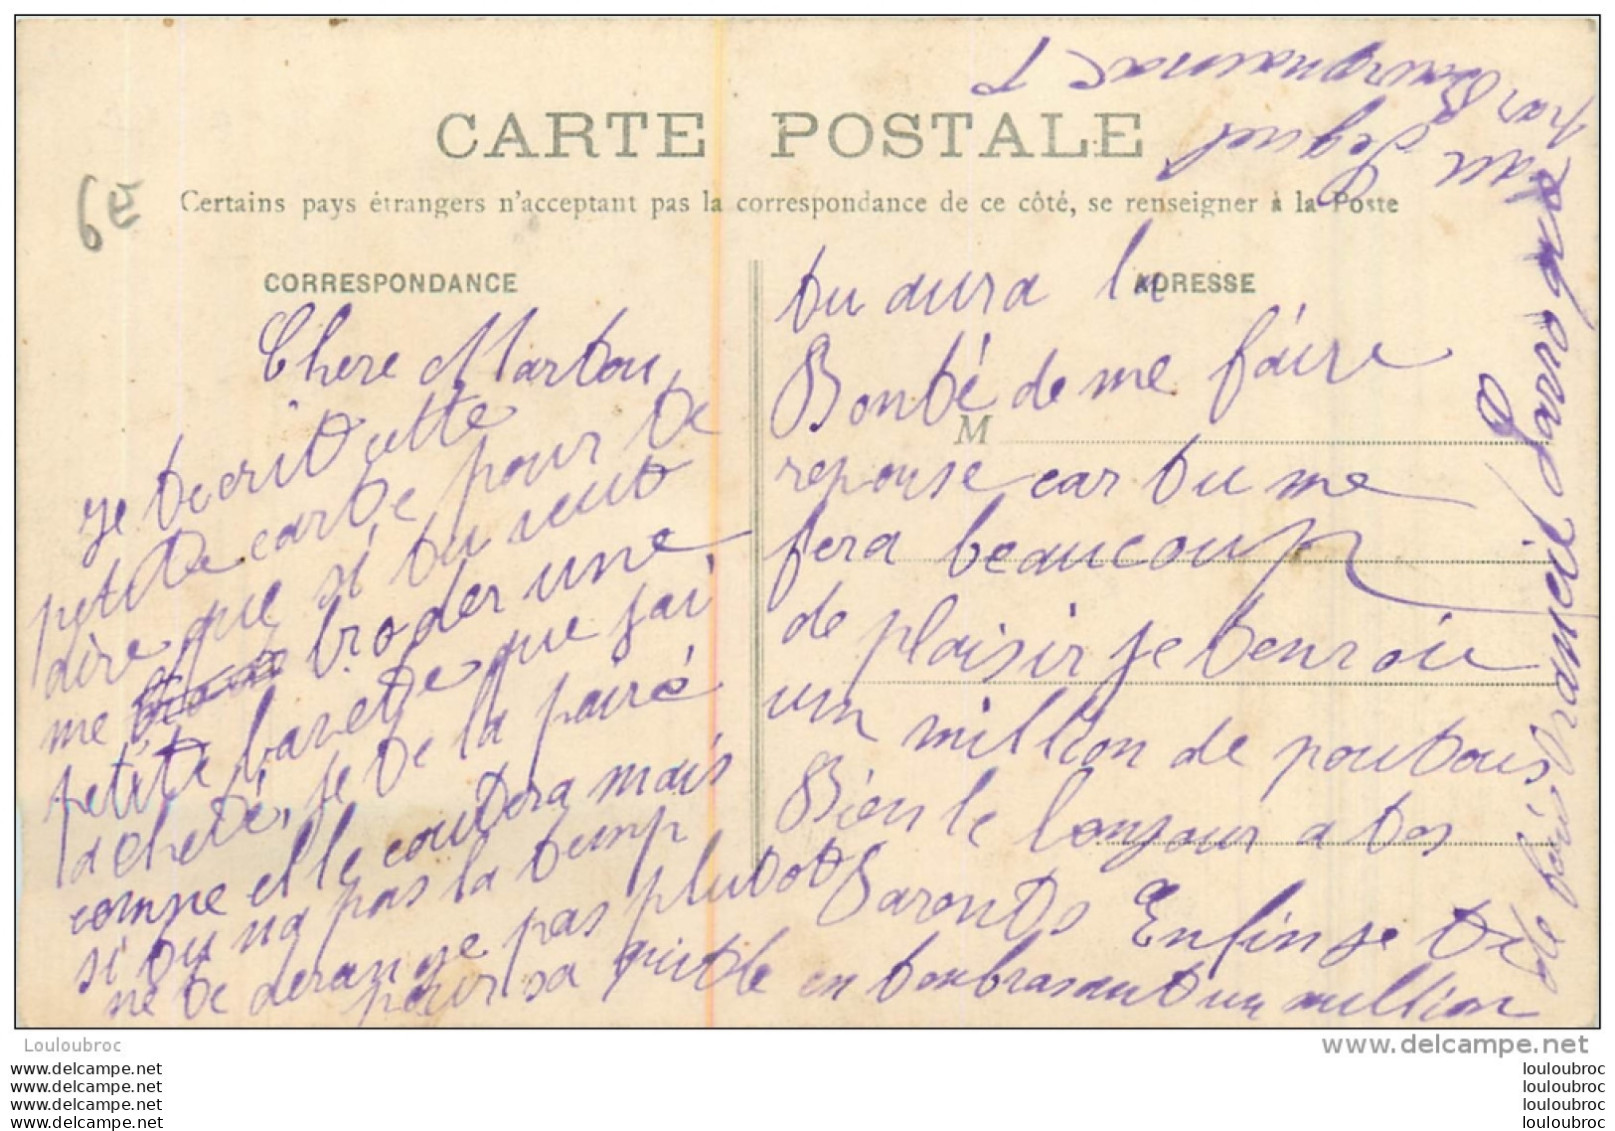 CARTE POSTALE
Certains pays étrangers n'acceptent pas la correspondance de ce côté, se renseigner à la Poste
6E
CORRESPONDANCE
Chere Martou
Je tecrit cette
petite carte pour te
dire que si tu veut
me broder une
petite bavete que jai
acheté, je te la pairé
compe elle coutera mais
si tu na pas la temp
ne te derange pas plutot
ADRESSE
M
tu aura la
Bonté de me faire
reponse car tu me
fera beaucoup
de plaisir je tenvoie
un million de poutous
Bien le bonjour a tos
Parents Enfin je te
pour sa quitte en tembrasent un million
de fois
par
Louloubroc
www.delcampe.net
www.delcampe.net
www.delcampe.net
www.delcampe.net
www.delcampe.net
louloubroc
louloubroc
louloubroc
louloubroc